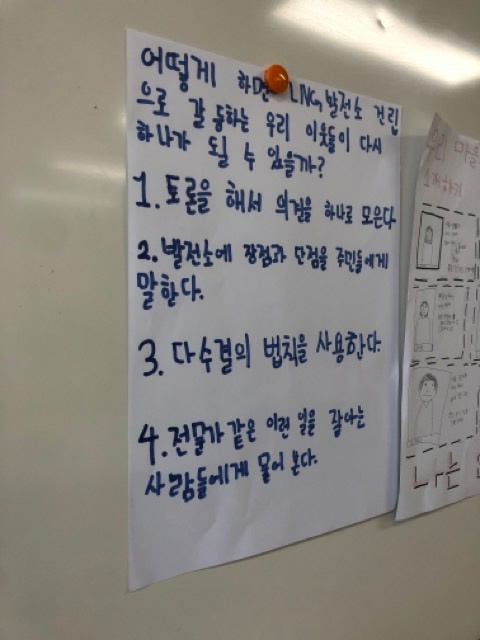 어떻게 하면 LNG 발전소 건립
으로 갈등하는 우리 이웃들이 다시
하나가 될 수 있을까?
1. 토론을 해서 의견을 하나로 모은다
2. 발전소에 장점과 단점을 주민들에게
말한다.
3. 다수결의 법칙을 사용한다.
4. 전문가 같은 이런 일을 잘 아는
사람들에게 물어 본다.
우리 마을
소개하기
나는